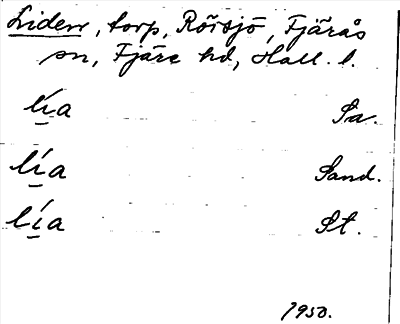 Liden, torp, Rörsjö, Fjärås
sn, Fjäre hd, Hall. l.
lía Sa.
lía Sand.
lía St.
1950.